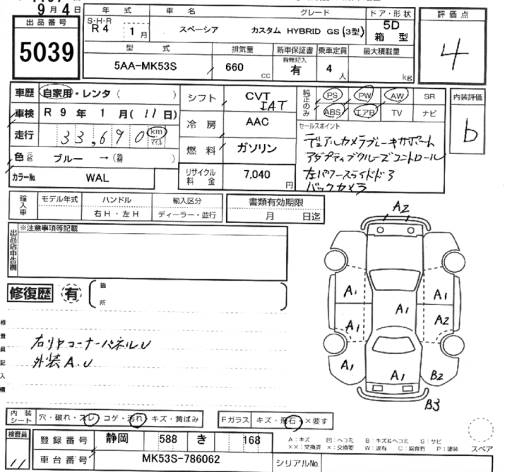 9月4日
出品番号
5039
年式
S・H・R
R4 1月
車名
スペーシア
グレード
カスタム HYBRID GS (3型)
ドア・形状
5D
箱型
評価点
4
型式
5AA-MK53S
排気量
660 cc
新車保証書
有
乗車定員
4 人
最大積載量
kg
車歴 自家用・レンタ ( )
車検 R 9 年 1 月 (11日)
走行 33,690 km
色 ブルー → ( )
カラーNo WAL
シフト CVT IAT
冷房 AAC
燃料 ガソリン
リサイクル料金 7,040 円
純正のみ
PS PW AW SR
ABS エアB TV ナビ
内装評価
b
セールスポイント
デュアルカメラブレーキサポート
アダプティブクルーズコントロール
左パワースライドドア
バックカメラ
輸入車
モデル年式 ハンドル 輸入区分
年 右H・左H ディーラー・並行
書類有効期限
月 日迄
出品店申告欄
※注意事項等記載
修復歴 有
箇所
検査員記入欄
右リヤコーナーパネルU
外装A.U
A2
A1 A1 A1
A1 A2
A1 A1 B2
B3
内装シート 穴・破れ・スレ・コゲ・汚れ・キズ・黄ばみ
Fガラス キズ・飛石・×要す
検査員
11
登録番号 静岡 588 き 168
車台番号 MK53S-786062
シリアルNo
スペア